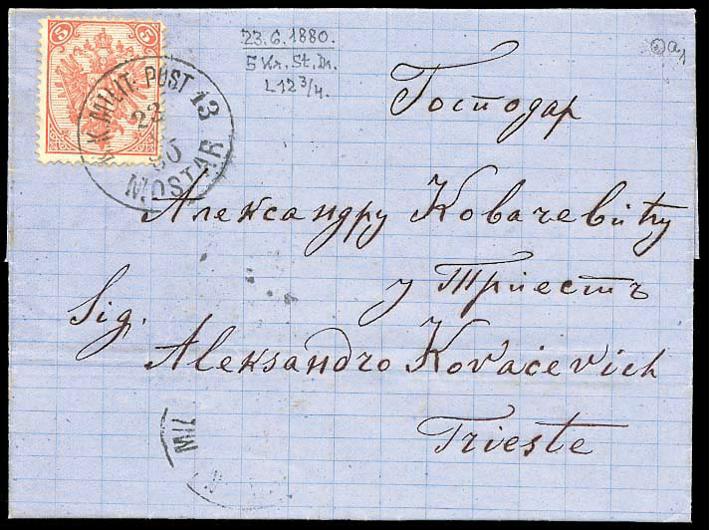 5 5
K. K. MILIT. POST 13
23
80
MOSTAR
23.6.1880.
5 Kr. St. Dr.
L 12 3/4.
a1
Господар
Александру Ковачевићу
у Тријестъ
Sig.
Aleksandro Kovačevich
Trieste
MIL